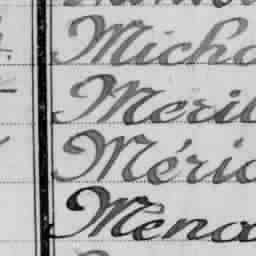 Micho
Meril
Méric
Ména